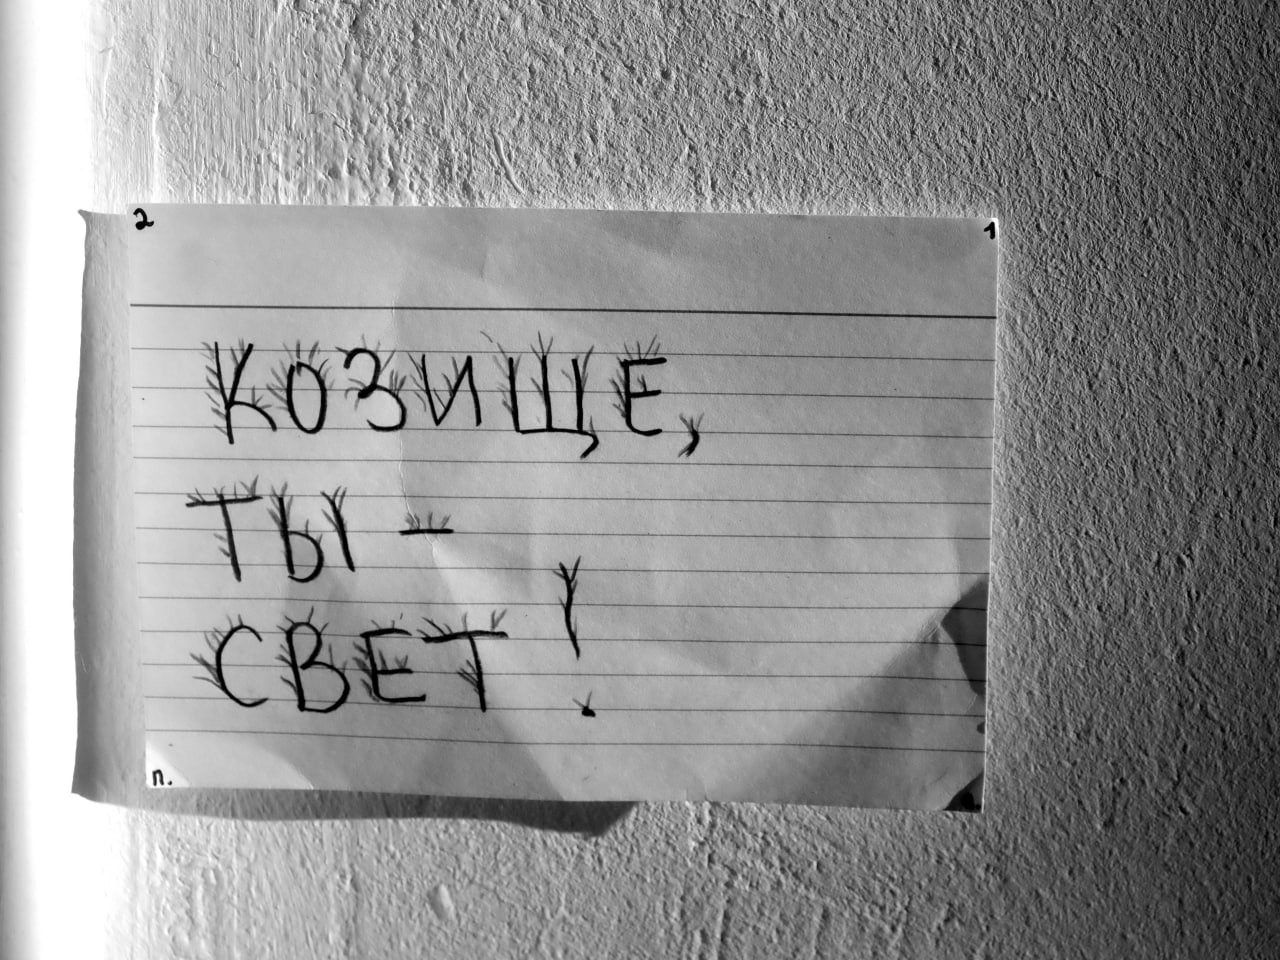 2 1
КОЗИЩЕ,
ТЫ -
СВЕТ!
п.